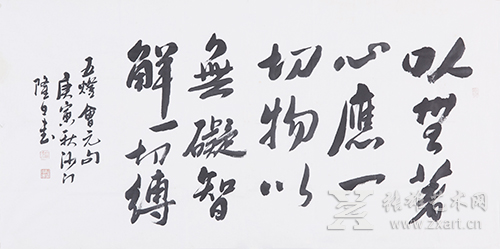 以無著
心應一
切物以
無礙智
解一切縛
五燈會元句
庚寅秋沙门
隆書
艺术网
www.zxart.cn